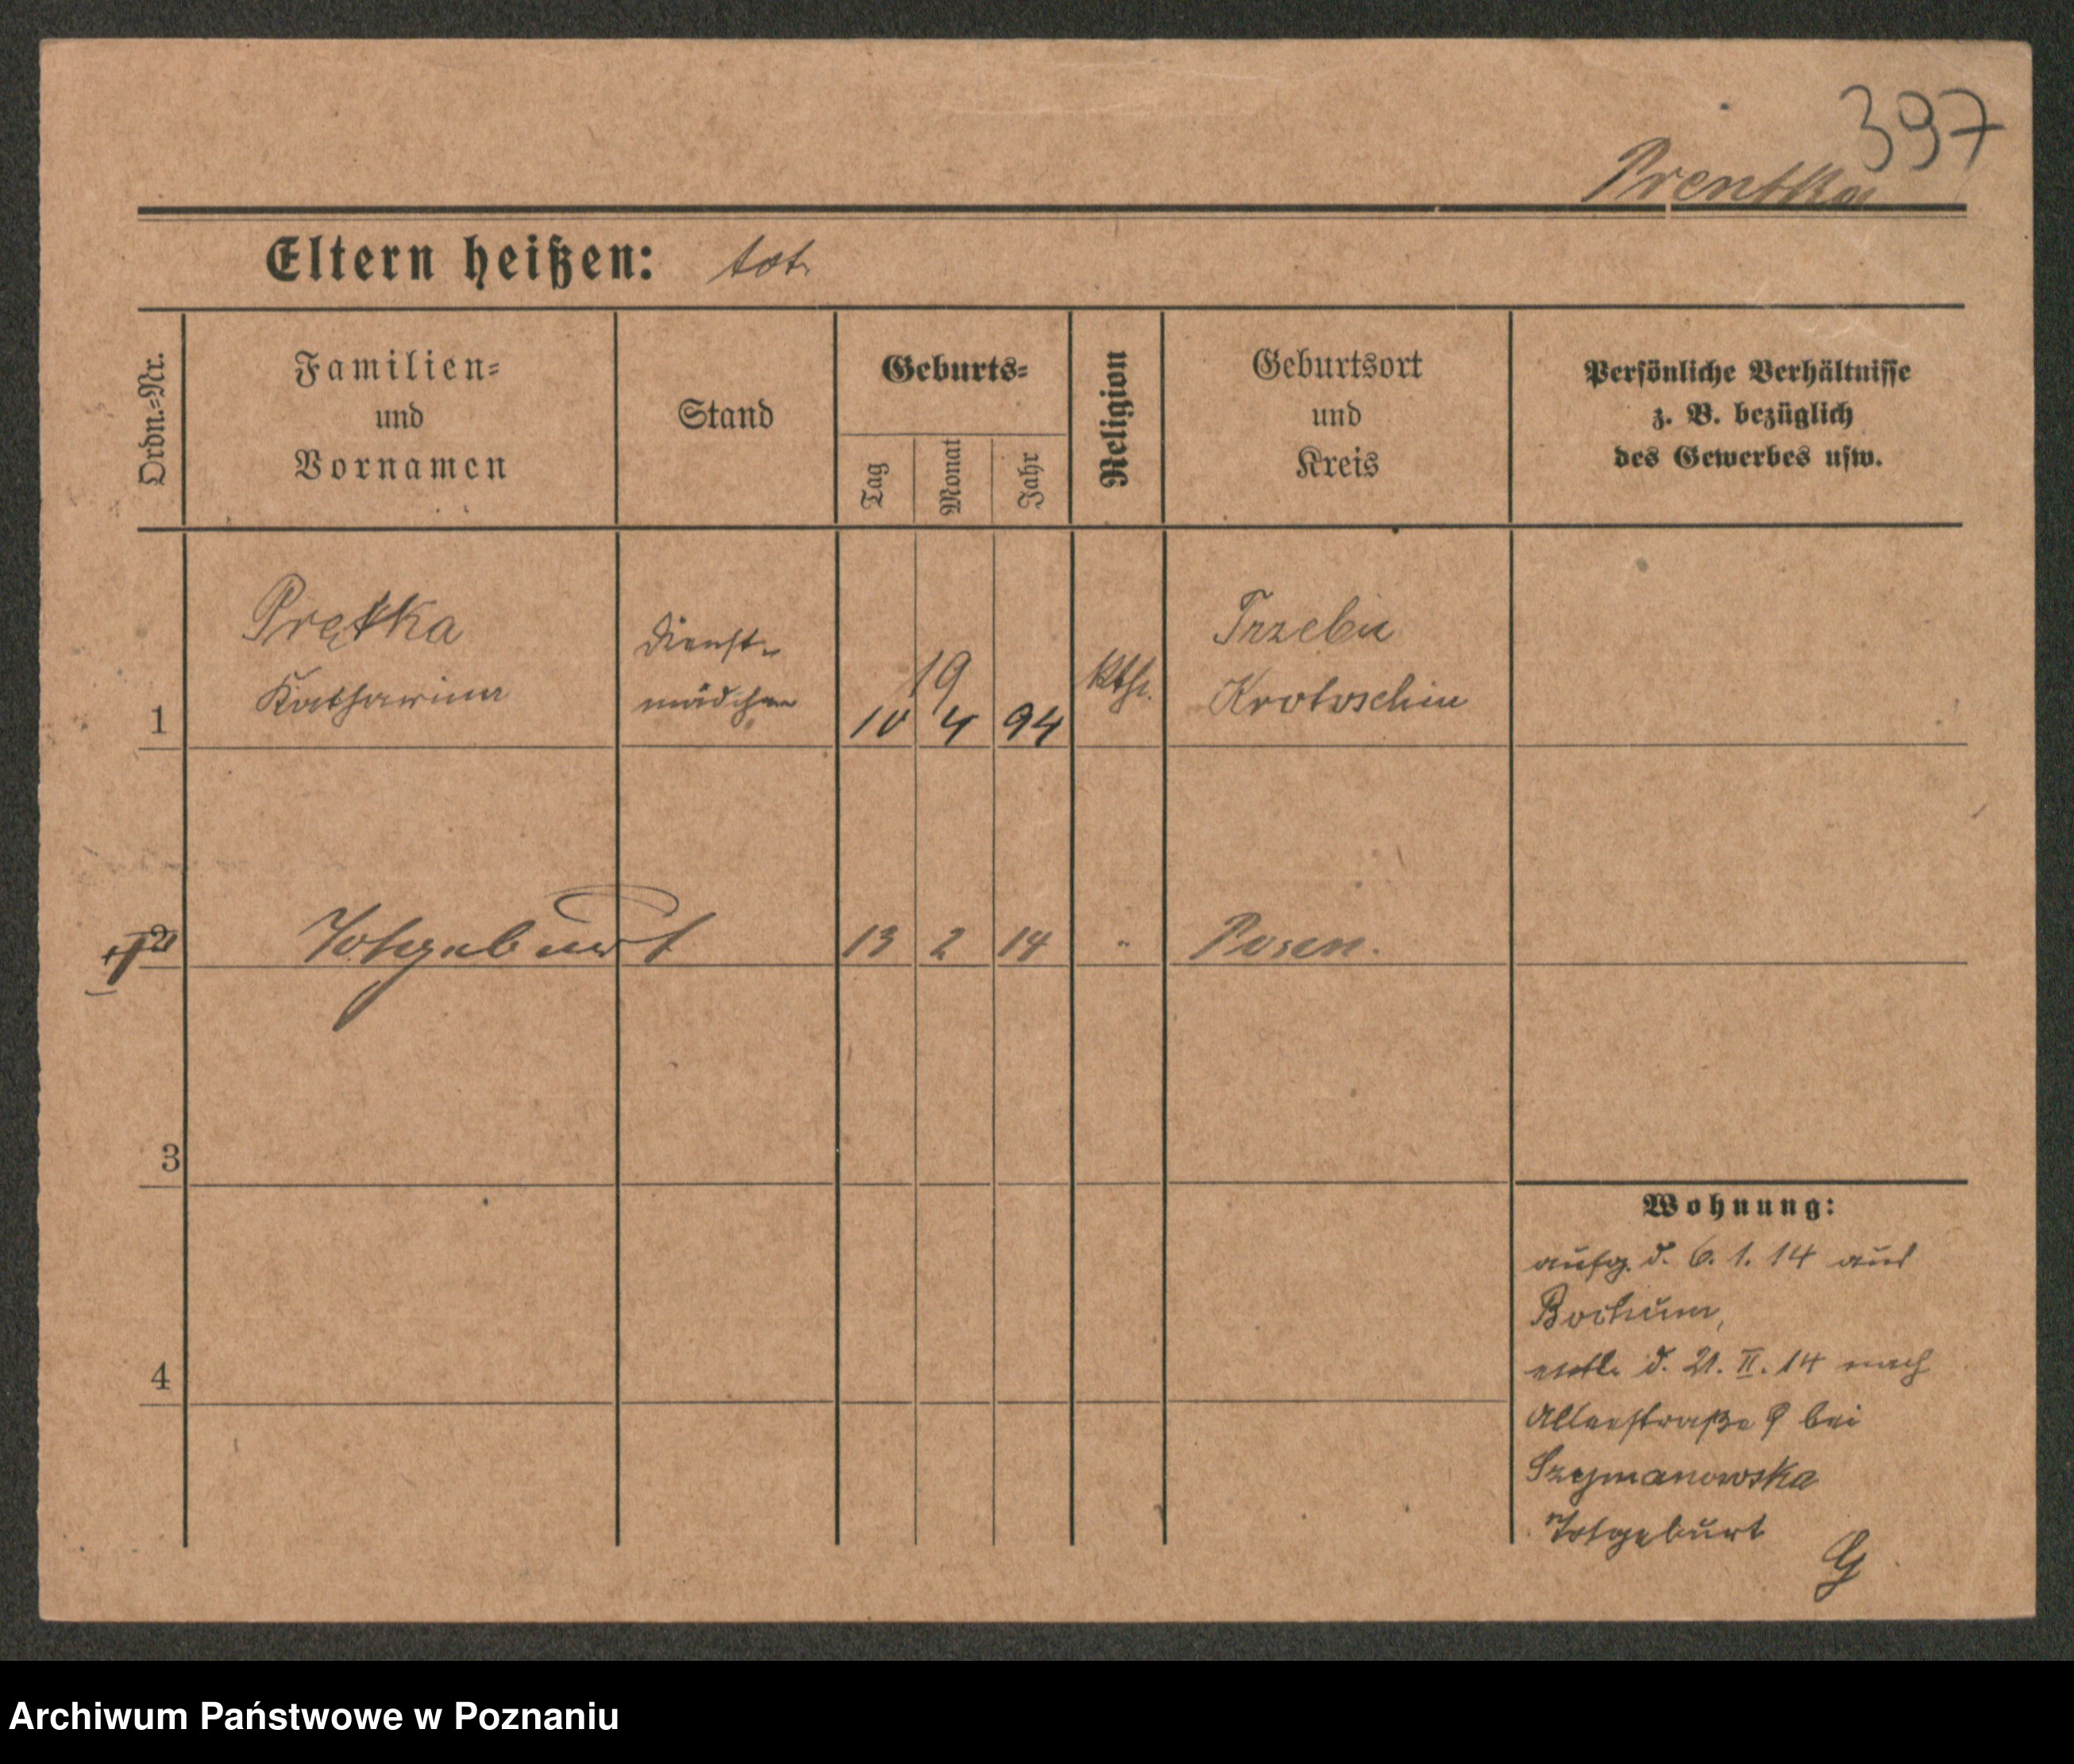 397
Prentka
Eltern heißen: tot.
Ordn.=Nr.
Familien=
und
Vornamen
Stand
Geburts=
Tag
Monat
Jahr
Religion
Geburtsort
und
Kreis
Persönliche Verhältnisse
z. B. bezüglich
des Gewerbes usw.
1
Prętka
Katharina
Dienst-
mädchen
19
10 4 94
kth.
Krotoschin
2
Totgeburt 13 2 14 " Posen.
3
4
Wohnung:
aufg. d. 6. 1. 14 aus
Bochum,
entl. d. 21. II. 14 nach
Alleestraße 9 bei
Szymanowska
Totgeburt
G
Archiwum Państwowe w Poznaniu